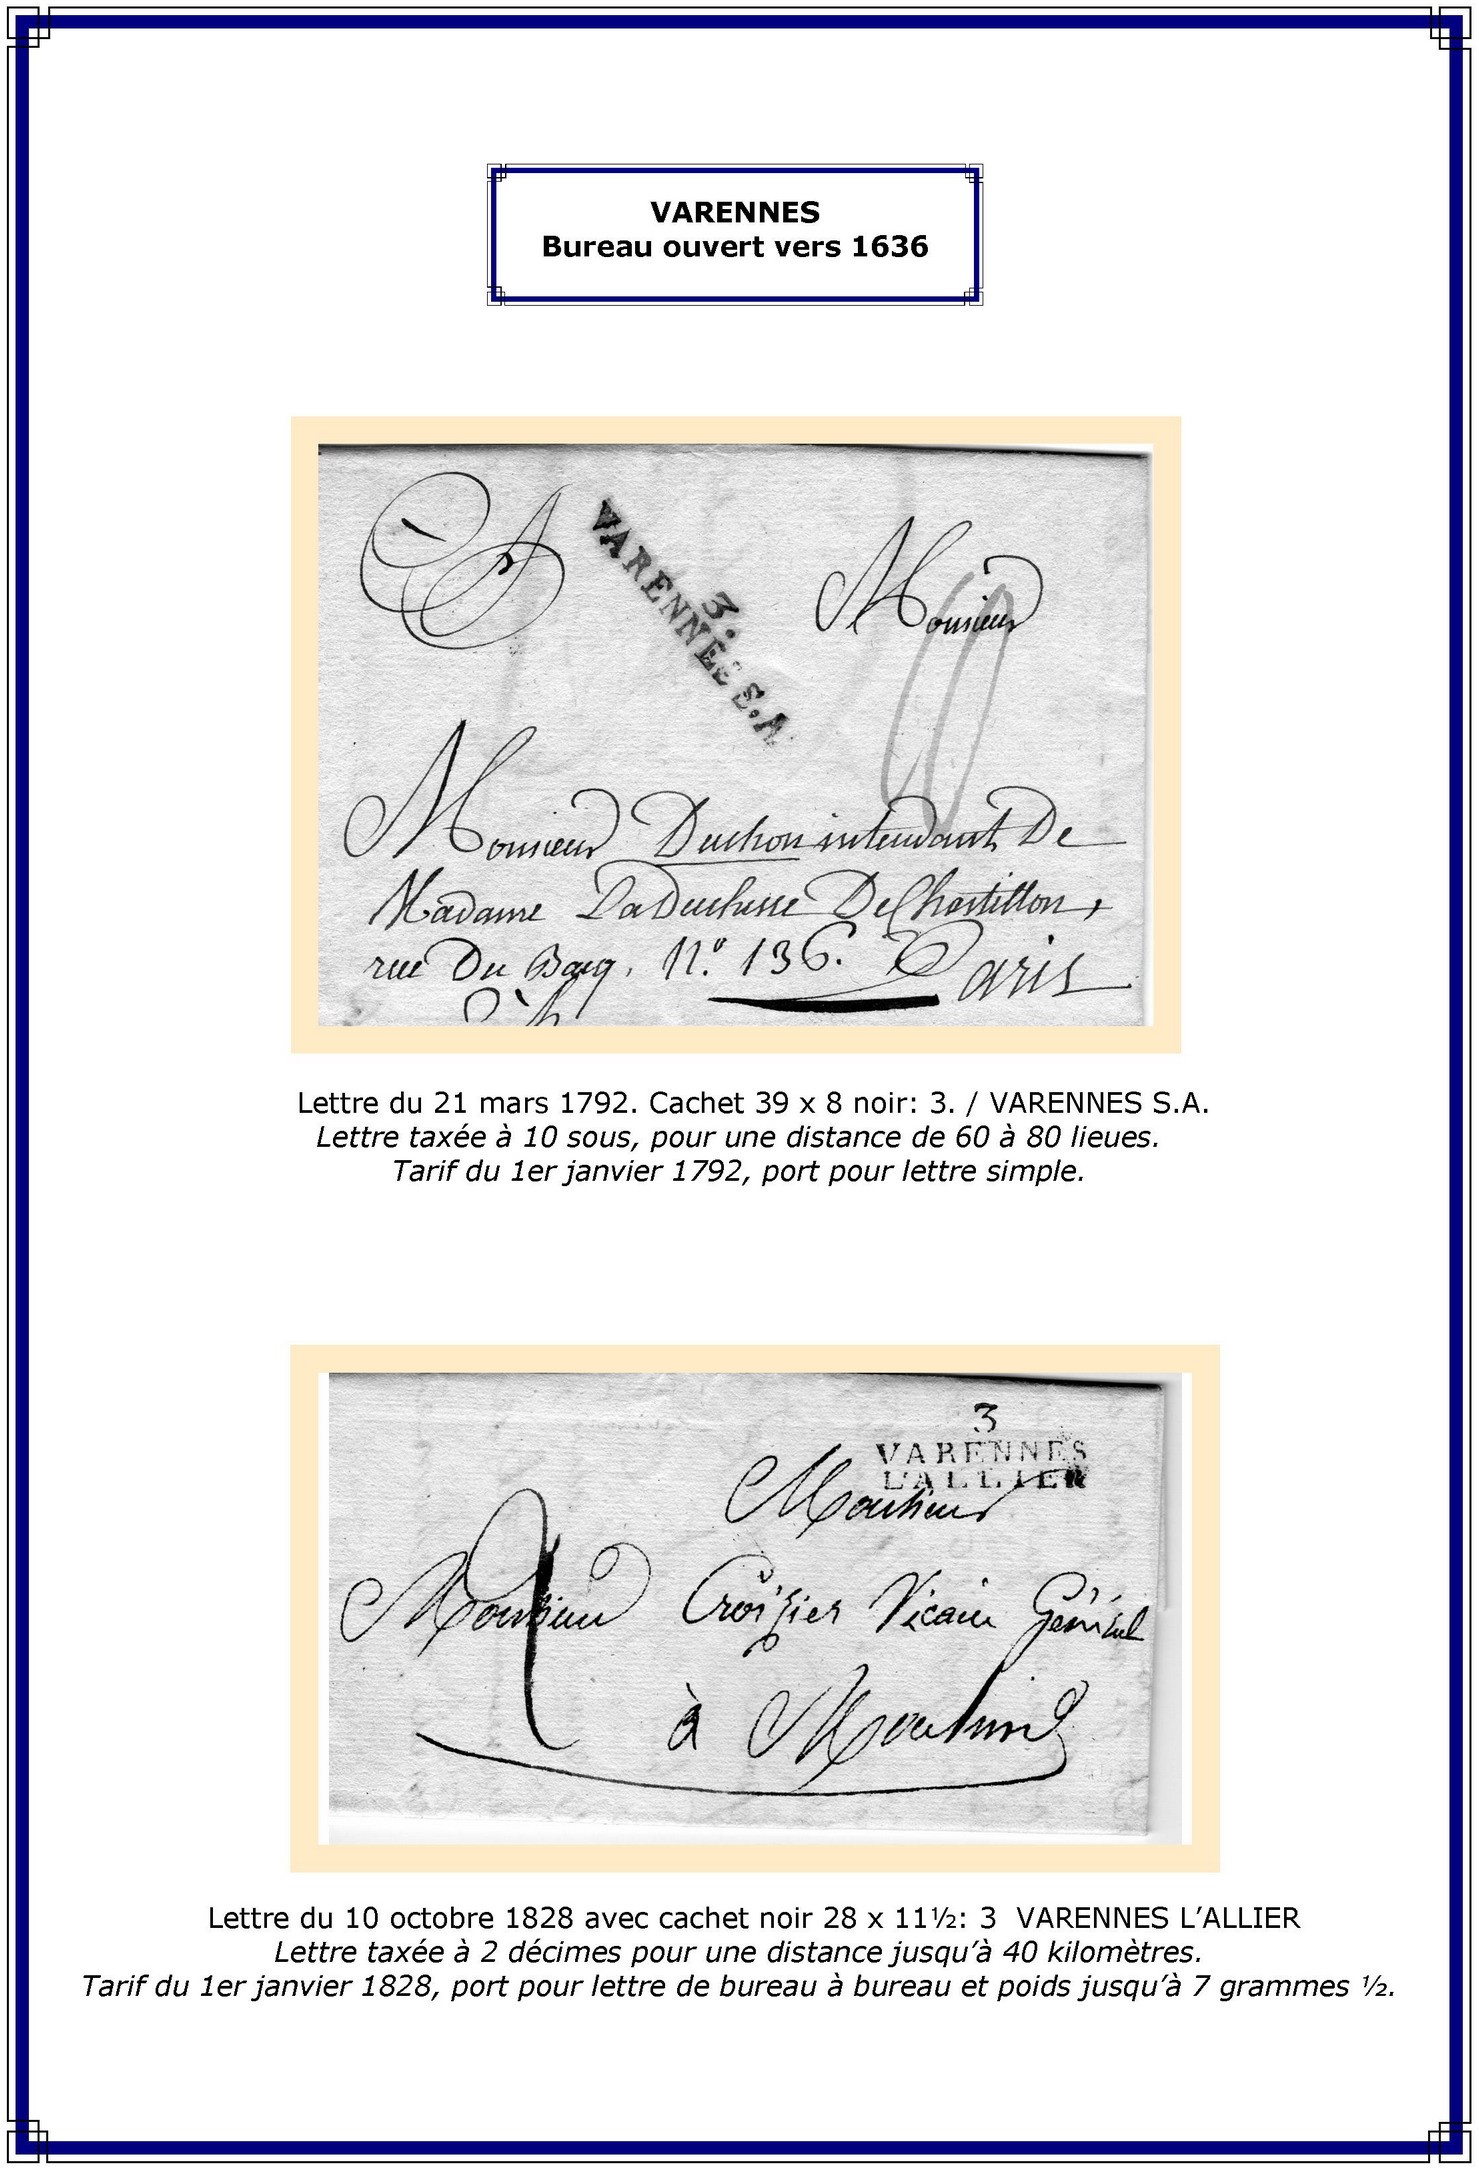 VARENNES
Bureau ouvert vers 1636
3.
VARENNES S.A.
10
Monsieur
Monsieur Duchon intendant De
Madame La Duchesse De Chastillon,
rue Du Bacq, N.º 136. Paris
Lettre du 21 mars 1792. Cachet 39 x 8 noir: 3. / VARENNES S.A.
Lettre taxée à 10 sous, pour une distance de 60 à 80 lieues.
Tarif du 1er janvier 1792, port pour lettre simple.
3
VARENNES
L'ALLIER
Monsieur
2
Monsieur Croizier Vicaire Général
à Moulins
Lettre du 10 octobre 1828 avec cachet noir 28 x 11½: 3  VARENNES L’ALLIER
Lettre taxée à 2 décimes pour une distance jusqu’à 40 kilomètres.
Tarif du 1er janvier 1828, port pour lettre de bureau à bureau et poids jusqu’à 7 grammes ½.